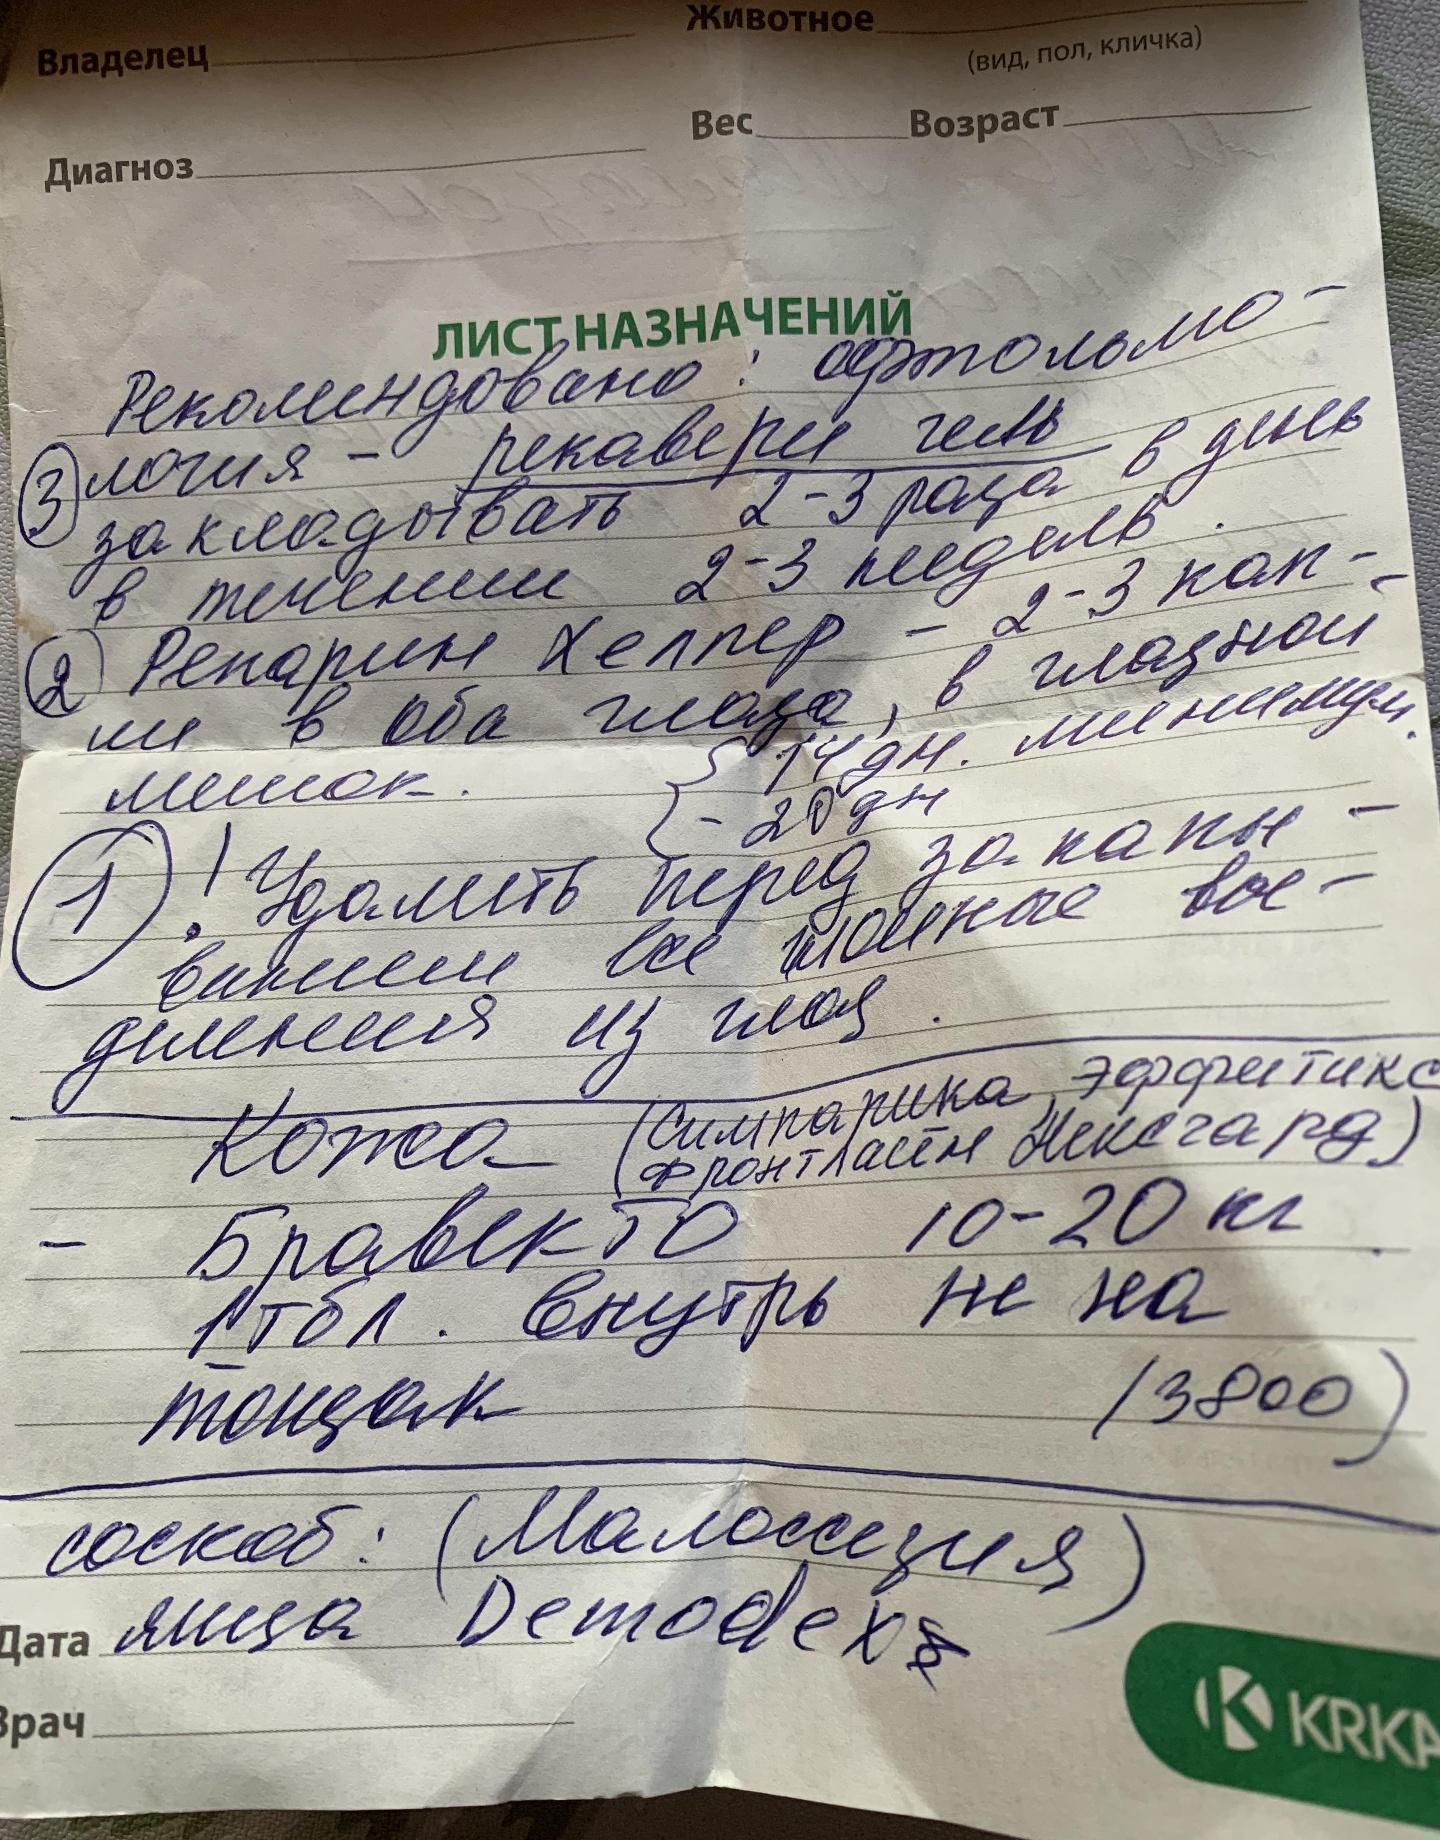 Владелец Животное
(вид, пол, кличка)
Вес Возраст
Диагноз
ЛИСТ НАЗНАЧЕНИЙ
Рекомендовано: офтольмо-
③ логия - рекавери гель
закладывать 2-3 раза в день
в течении 2-3 недель.
② Репарин Хелпер - 2-3 кап-
ли в оба глаза, в глазной
мешок. { 14 дн. минимум.
- 20 дн
① ! Удалить перед закапы-
ванием все гнойные вы-
деления из глаз.
Кожа (Симпарика, эффитикс
фронтлайн Нексгард)
- Бравекто 10-20 кг
1 тбл. внутрь не на
тощак (3800)
соскоб: (Малассезия)
яйца Demodex
Дата
Врач
KRKA